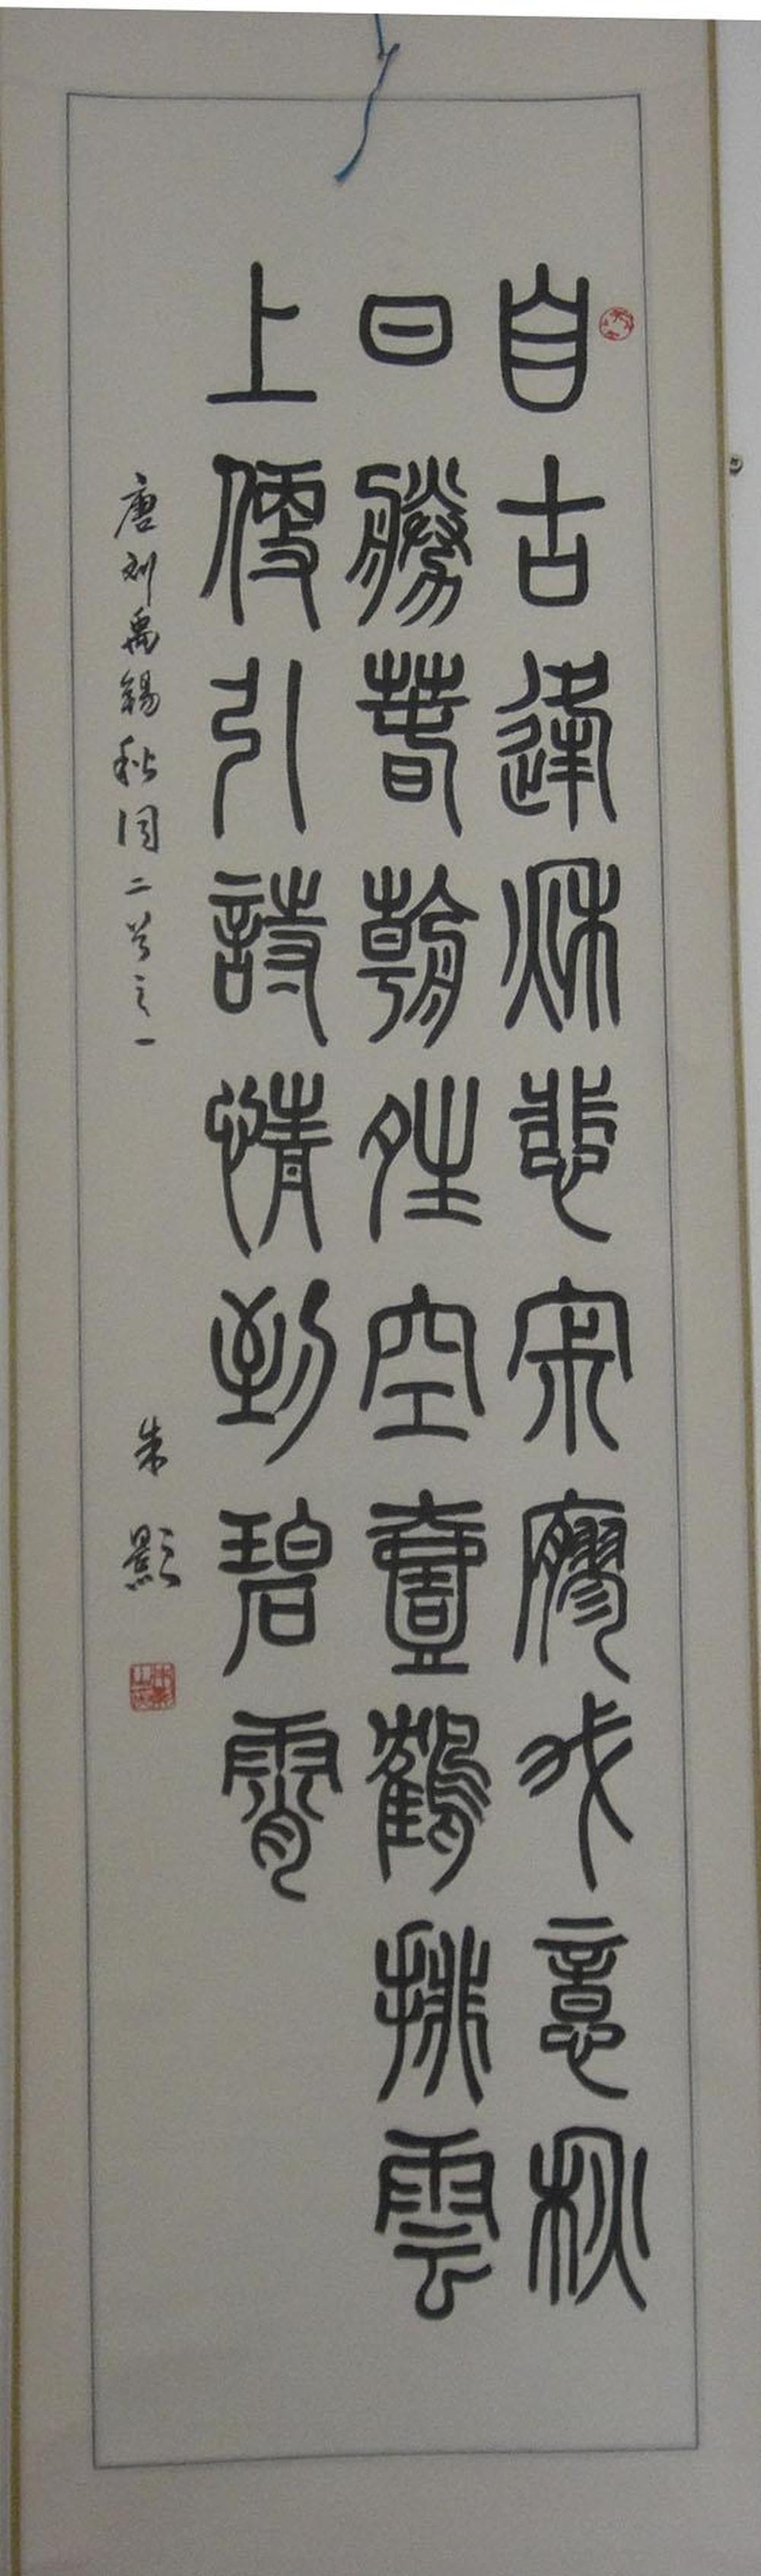 自古逢秋悲寂廖我意秋
日勝春朝晴空壹鶴排雲
上便引詩情到碧霄
唐刘禹錫秋词二首之一
朱影